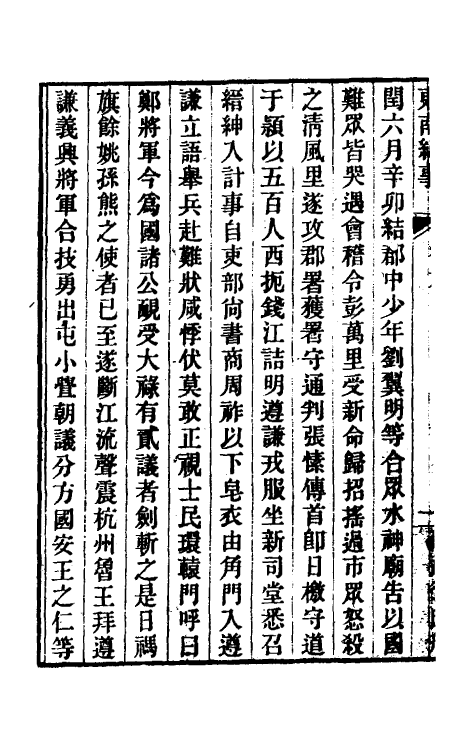 東南紀事
閏六月辛卯結郡中少年劉翼明等合眾水神廟告以國
難眾皆哭遇會稽令彭萬里受新命歸招搖過市眾怒殺
之清風里遂攻郡署獲署守通判張愫傳首卽日檄守道
于頴以五百人西扼錢江詰明遵謙戎服坐新司堂悉召
縉紳入計事自吏部尙書商周祚以下皂衣由角門入遵
謙立語舉兵赴難狀咸悸伏莫敢正視士民環轅門呼曰
鄭將軍今爲國諸公靦受大祿有貳議者劍斬之是日禡
旗餘姚孫熊之使者已至遂斷江流聲震杭州魯王拜遵
謙義興將軍合技勇出屯小亹朝議分方國安王之仁等